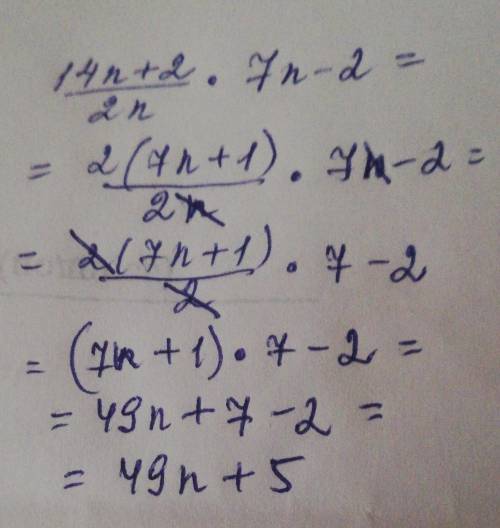 14n+2/2n · 7n-2 =
= 2(7n+1)/2n · 7n-2 =
= 2(7n+1)/2 · 7-2
= (7n+1) · 7-2 =
= 49n+7-2 =
= 49n+5